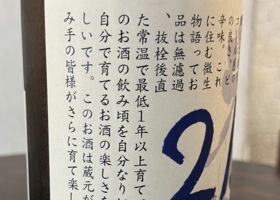 辛味。これ
に住む微生
物語ってお
品は無濾過
、抜栓後直
た常温で最低1年以上育て
のお酒の飲み頃を自分なりに
自分で育てるお酒の楽しさを
しいです。このお酒は蔵元が
み手の皆様がさらに育て楽し
2